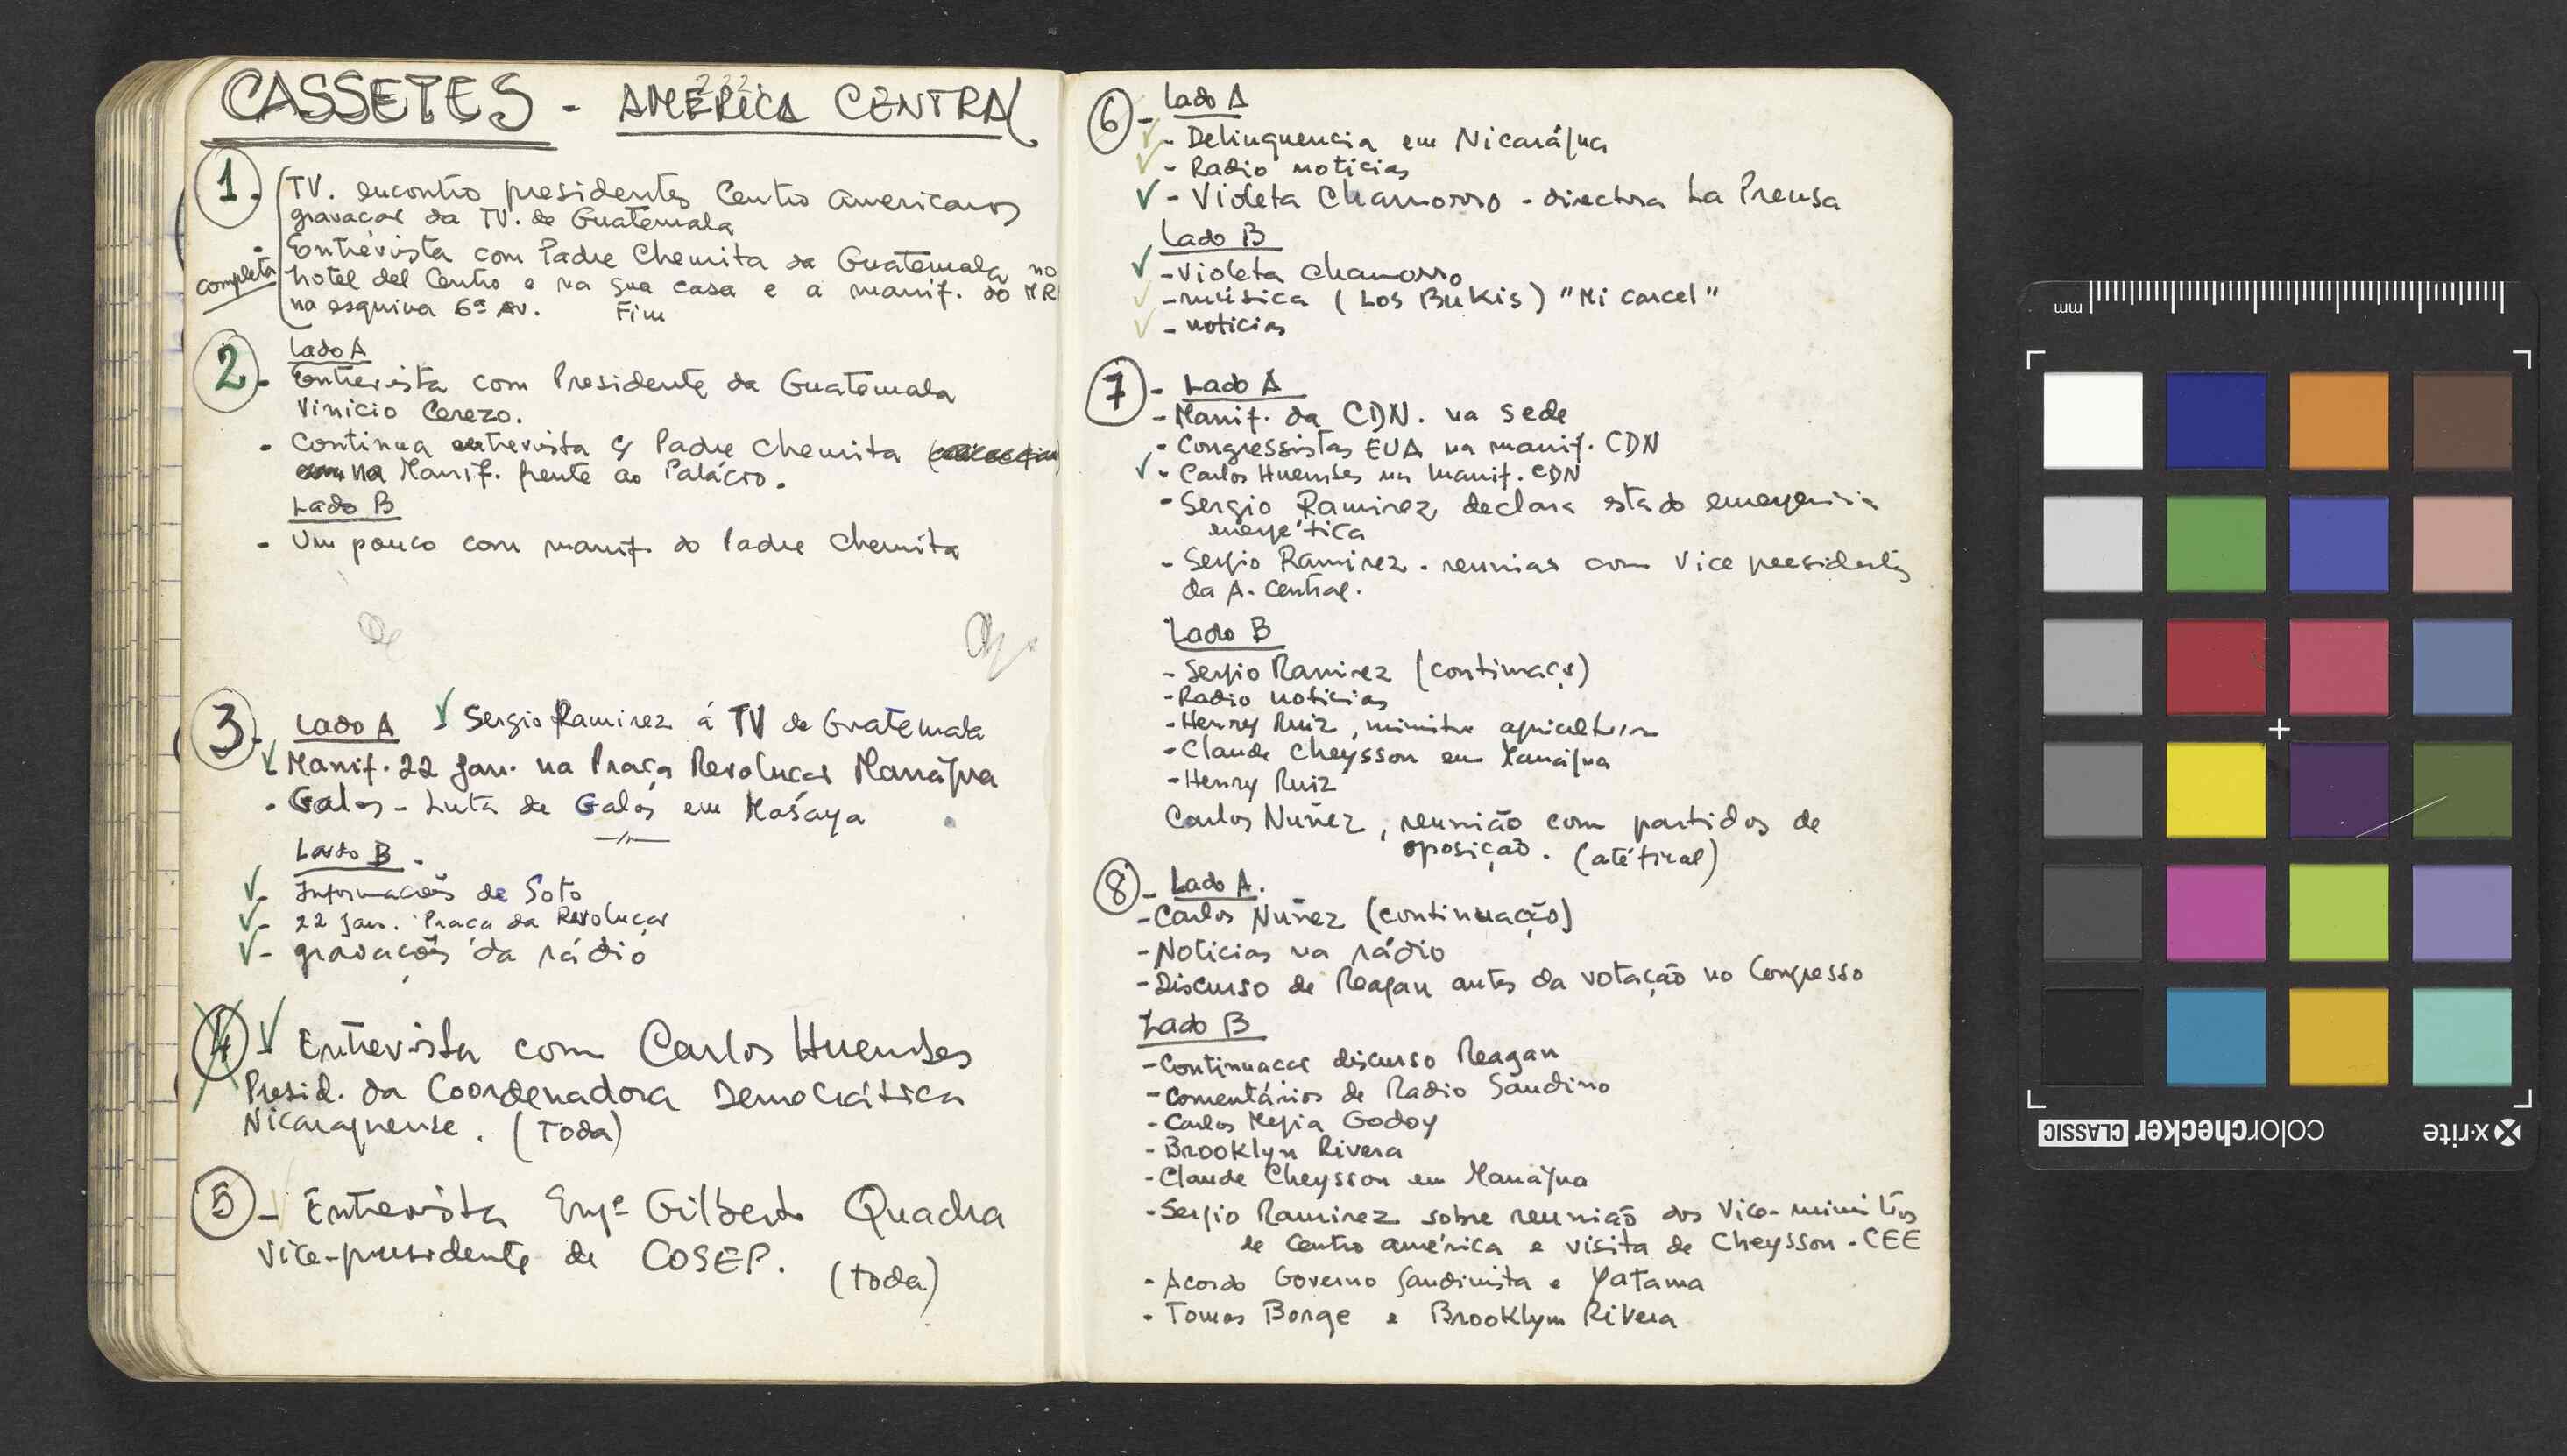 CASSETES - AMÉRICA CENTRAL
1. TV. encontro presidentes Centro americanos
gravaçao da TV. de Guatemala
· Entrevista com Padre Chemita da Guatemala no
completa hotel del Centro e na sua casa e a manif. do MR
na esquina 6ª AV. Fim
2. Lado A
Entrevista com Presidente da Guatemala
Vinicio Cerezo.
· Continua entrevista c/ Padre Chemita
na Manif. frente ao Palácio.
Lado B
- Um pouco com manif. do Padre Chemita
3. Lado A √ Sergio Ramirez á TV de Guatemala
√ Manif. 22 Jan. na Praça Revoluçao Manágua
· Galos - Luta de Galos em Masaya
Lado B.
√- Informações de Soto
√- 22 Jan. Praça da Revoluçao
√- gravações da rádio
4 √ Entrevista com Carlos Huembes
Presid. da Coordenadora Democrática
Nicaraguense. (Toda)
5 - Entrevista Engº Gilberto Quadra
Vice-presidente de COSEP. (toda)
6 - Lado A
√- Delinquencia em Nicarágua
√- Radio noticias
√- Violeta Chamorro - directora La Prensa
Lado B
√- Violeta Chamorro
√- música (Los Bukis) "Mi carcel"
√- noticias
7 - Lado A
- Manif. da CDN. na sede
- Congressistas EUA na manif. CDN
√- Carlos Huembes na manif. CDN
- Sergio Ramirez declara estado emergencia
energética
- Sergio Ramirez. reuniao com Vice presidentes
da A. Central.
Lado B
- Sergio Ramirez (continuaçº)
- Radio noticias
- Henry Ruiz, ministro agricultura
- Claude Cheysson em Manágua
- Henry Ruiz
Carlos Nuñez, reunião com partidos de
oposição. (até final)
8 - Lado A.
- Carlos Nuñez (continuação)
- Noticias na rádio
- Discurso de Reagan antes da votação no Congresso
Lado B
- Continuaçao discurso Reagan
- Comentários de Radio Sandino
- Carlos Mejia Godoy
- Brooklyn Rivera
- Claude Cheysson em Manágua
- Sergio Ramirez sobre reunião dos Vice-ministros
de Centro américa e visita de Cheysson - CEE
- Acordo Governo Sandinista e Yatama
- Tomas Borge e Brooklyn Rivera
mm
colorchecker CLASSIC
x-rite